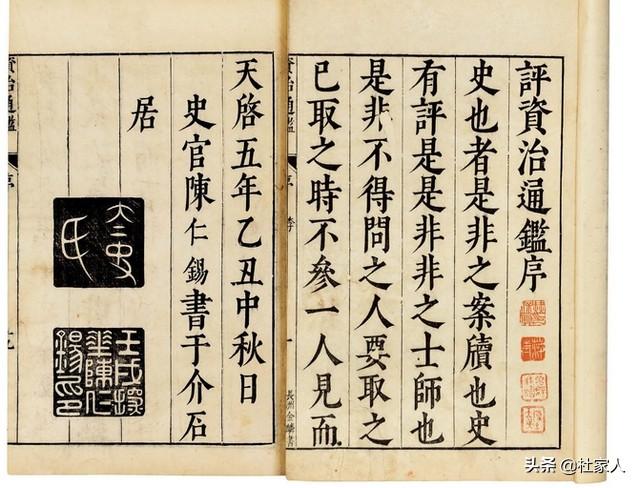 評資治通鑑序
史也者是非之案牘也史
有評是是非非之士師也
是非不得問之人要取之
已取之時不參一人見而
資治通鑑 序 一
天啓五年乙丑中秋日
史官陳仁錫書于介石
居
大史氏
壬戌探花陳仁錫印
資治通鑑 序
头条 @杜家人